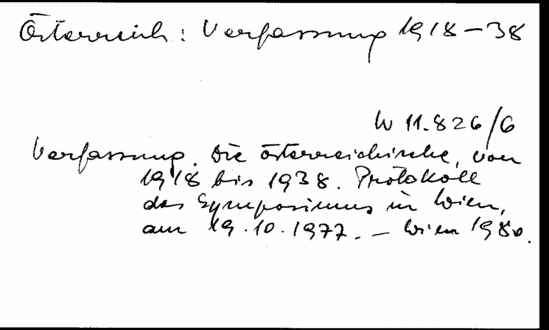 Österreich: Verfassung 1918-38
W 11.826/6
Verfassung. Die österreichische, von
1918 bis 1938. Protokoll
des Symposiums in Wien,
am 19.10.1977. - Wien 1980.